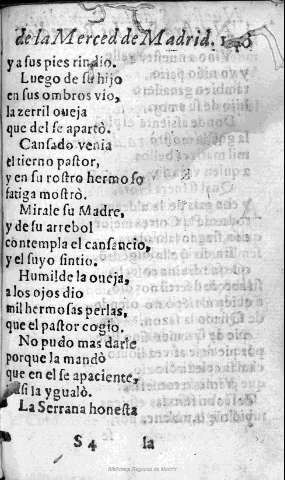 de la Merced de Madrid. 140
y a sus pies rindio.
Luego de su hijo
en sus ombros vio,
la zerril oueja
que del se apartò.
Cansado venia
el tierno pastor,
y en su rostro hermoso
fatiga mostrò.
Mirale su Madre,
y de su arrebol
contempla el cansancio,
y el suyo sintio.
Humilde la oueja,
a los ojos dio
mil hermosas perlas,
que el pastor cogio.
No pudo mas darle
porque la mandò
que en el se apaciente,
assi la ygualò.
La Serrana honesta
S 4 la
Biblioteca Regional de Madrid